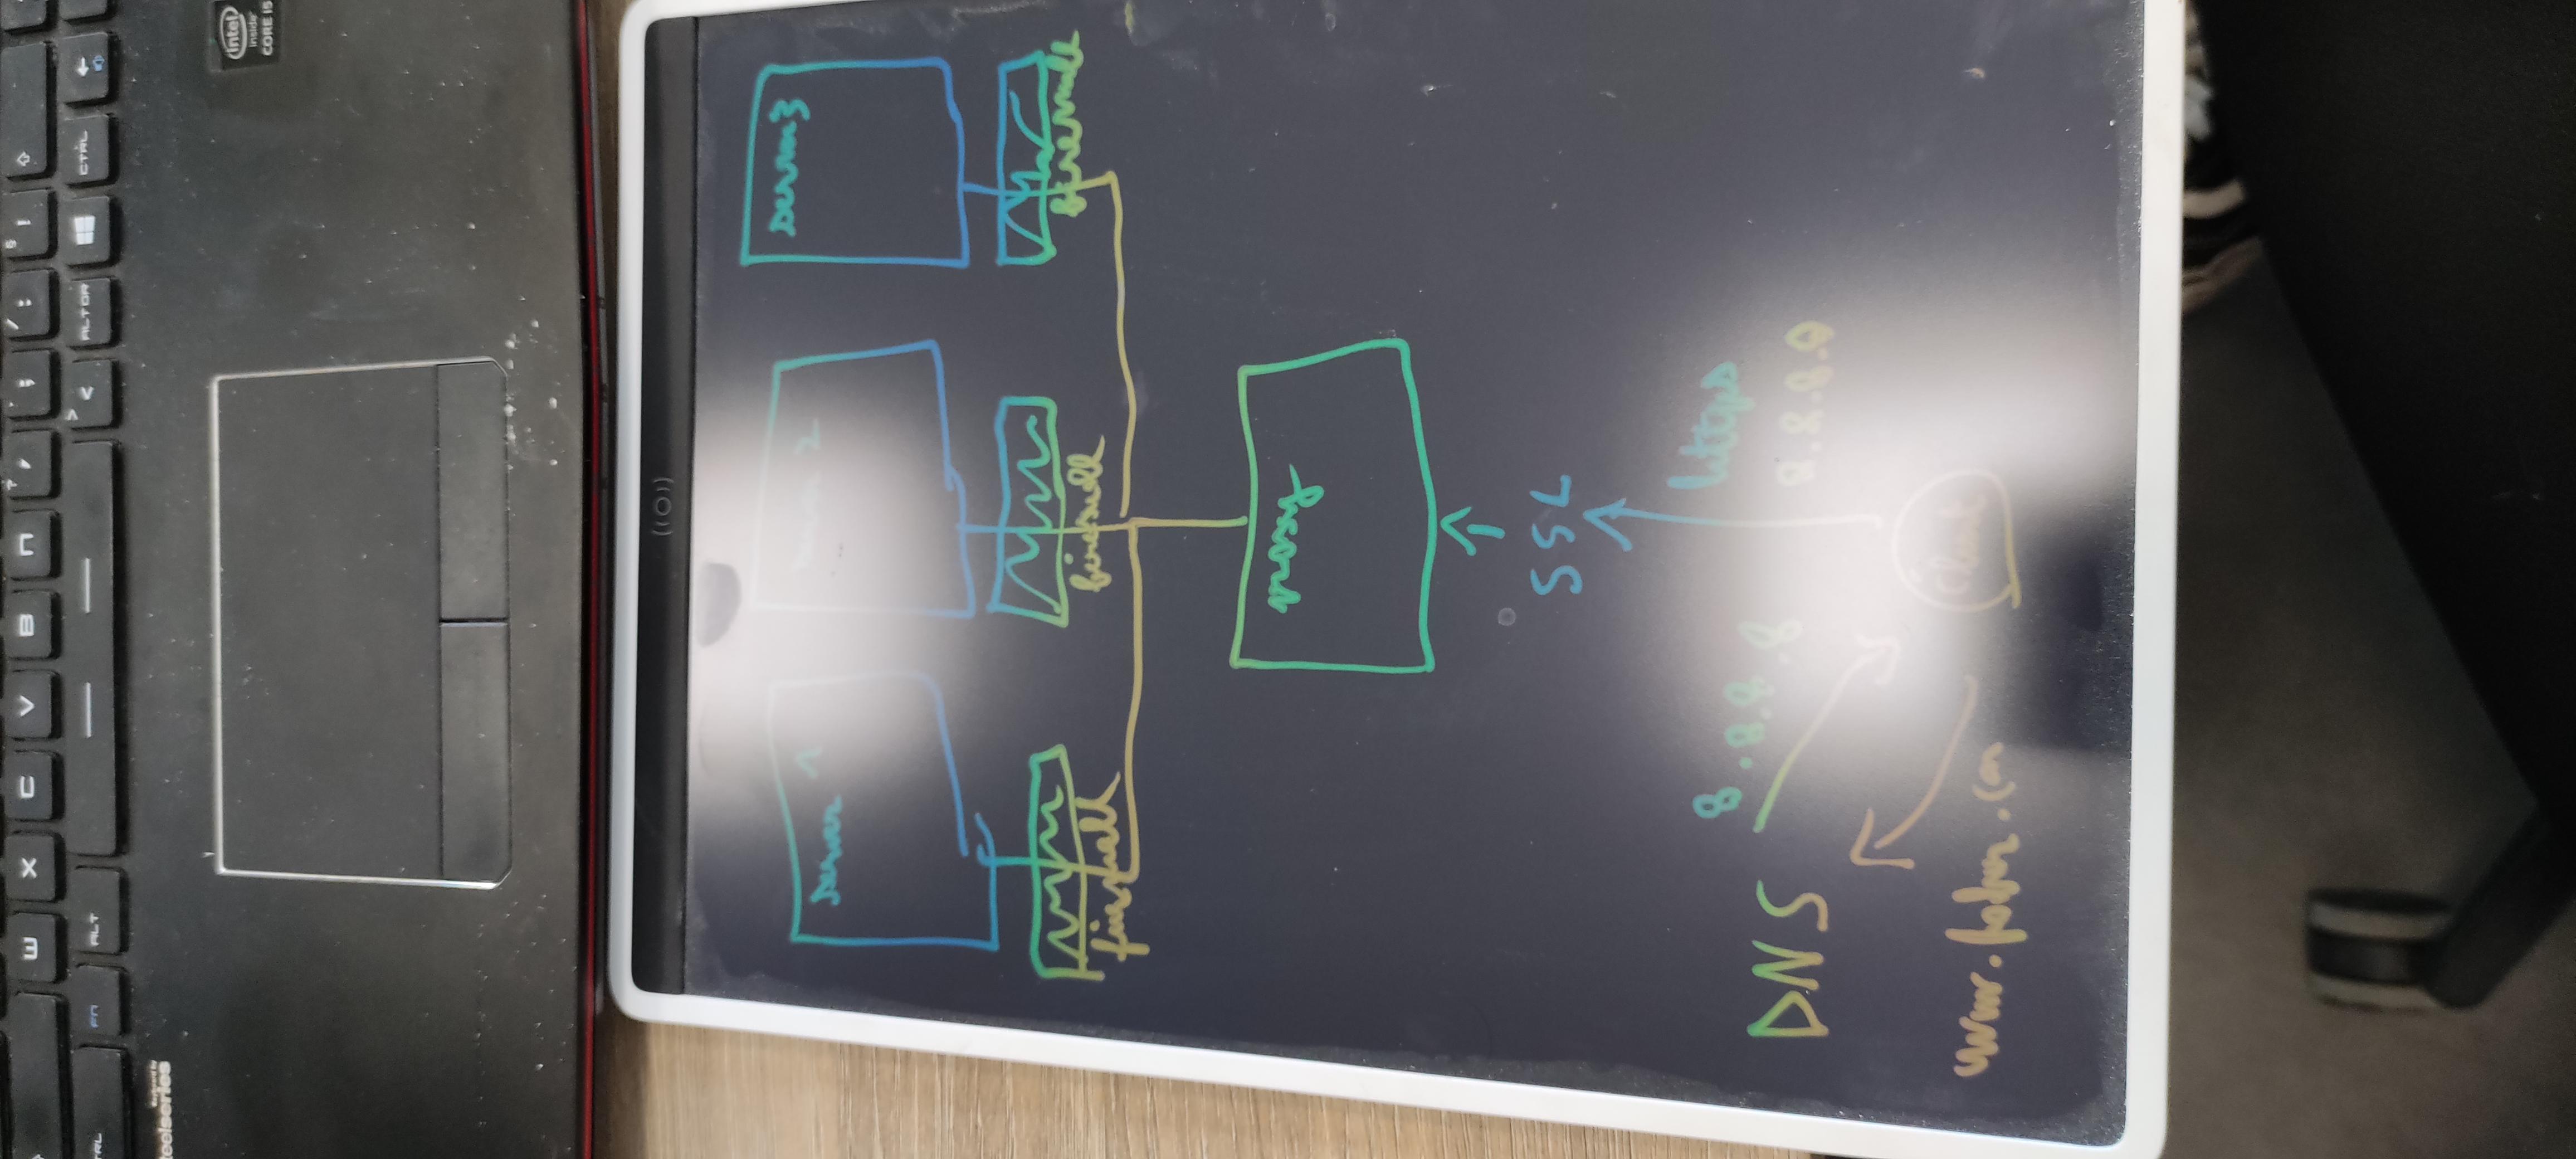 W X C V B N ? , . ; / : § !
CTRL FN ALT > < ALT GR CTRL
Keyboard by
steelseries
intel
inside
CORE i5
server 1
2
server 3
firewall
firewall
firewall
proxy
SSL
https
8.8.8.8
8.8.8.8
DNS
client